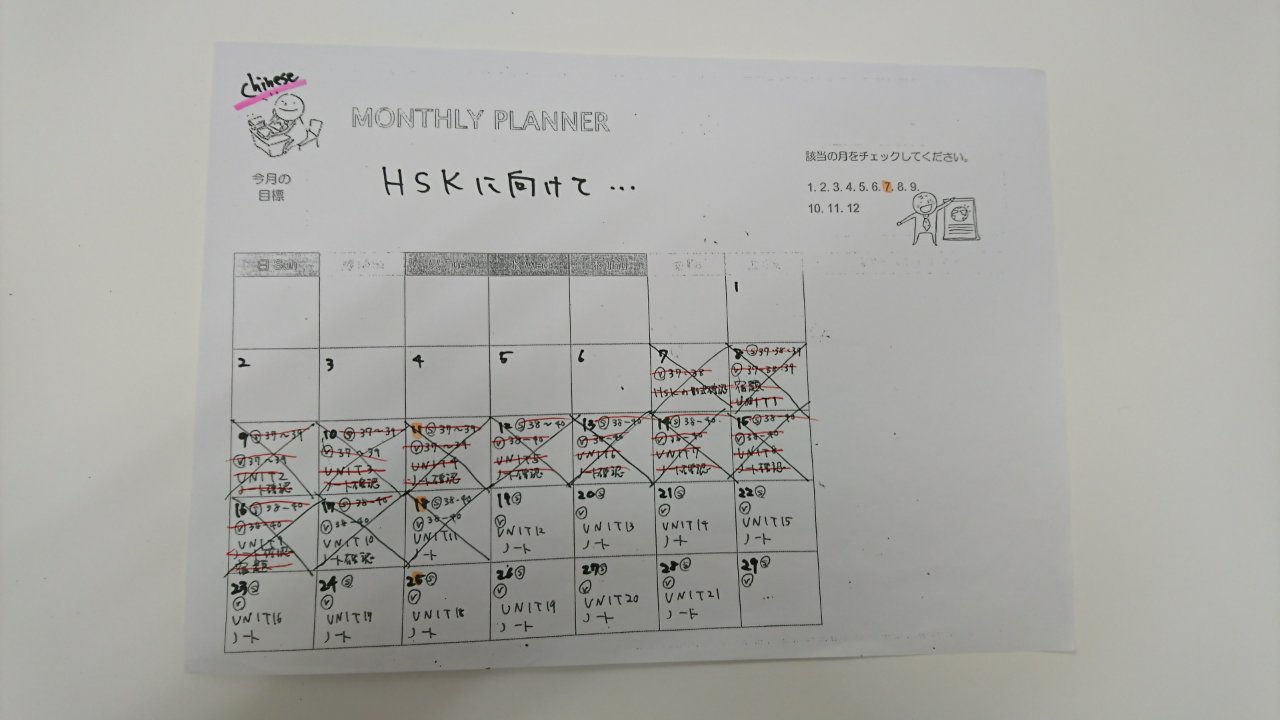 chinese
MONTHLY PLANNER
今月の
目標
HSKに向けて…
該当の月をチェックしてください。
1. 2. 3. 4. 5. 6. 7. 8. 9.
10. 11. 12
日 Sun
1
2
3
4
5
6
7
Ⓥ37-38
HSKの形式確認
8 Ⓢ37-38-39
Ⓥ37-38-39
宿題
UNIT1
9 Ⓢ37～39
Ⓥ37～39
UNIT2
ノート確認
10 Ⓢ37～39
Ⓥ37～39
UNIT3
ノート確認
11 Ⓢ37～39
Ⓥ37～39
UNIT4
ノート確認
12 Ⓢ38～40
Ⓥ38-40
UNIT5
ノート確認
13 Ⓢ38-40
Ⓥ38-40
UNIT6
ノート確認
14 Ⓢ38-40
Ⓥ38-40
UNIT7
ノート確認
15 Ⓢ38-40
Ⓥ38-40
UNIT8
ノート確認
16 Ⓢ38-40
Ⓥ38-40
UNIT9
ノート確認
宿題
17 Ⓢ38-40
Ⓥ38-40
UNIT10
ノート確認
18 Ⓢ38-40
Ⓥ38-40
UNIT11
ノート
19 Ⓢ
Ⓥ
UNIT12
ノート
20 Ⓢ
Ⓥ
UNIT13
ノート
21 Ⓢ
Ⓥ
UNIT14
ノート
22 Ⓢ
Ⓥ
UNIT15
ノート
23 Ⓢ
Ⓥ
UNIT16
ノート
24 Ⓢ
Ⓥ
UNIT17
ノート
25 Ⓢ
Ⓥ
UNIT18
ノート
26 Ⓢ
Ⓥ
UNIT19
ノート
27 Ⓢ
Ⓥ
UNIT20
ノート
28 Ⓢ
Ⓥ
UNIT21
ノート
29 Ⓢ
Ⓥ
…